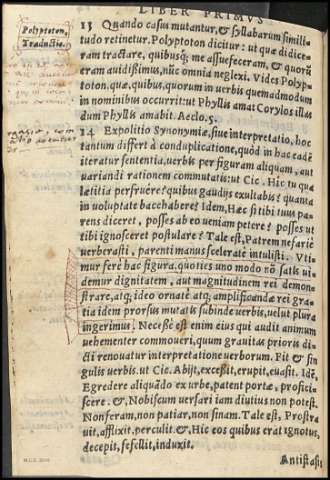 LIBER PRIMVS
Polyptoton,
Traductio.
13 Quando casus mutantur, & syllabarum simili
tudo retinetur. Polyptoton dicitur: ut quæ dicere
ram tractare, quibusq; me assuefeceram, & quorũ
eram auidißimus, nũc omnia neglexi. Vides Polyp-
toton, quæ, quibus, quorum in uerbis quemadmodum
in nominibus occurrit: ut Phyllis amat Corylos illas
dum Phyllis amabit. Aeclo. 5.
14 Expolitio Synonymiæ, siue interpretatio, hoc
tantum differt à conduplicatione, quòd in hac eadẽ
iteratur sententia, uerbis per figuram aliquam, aut
uariandi rationem commutatis: ut Cic. Hic tu qua
lætitia perfruere? quibus gaudijs exultabis? quanta
in uoluptate bacchabere? Idem, Hæc si tibi tuus pa-
rens diceret, posses ab eo ueniam petere? posses ut
tibi ignosceret postulare? Tale est, Patrem nefariè
uerberasti, parenti manus sceleratè intulisti. Vti-
mur ferè hac figura, quoties uno modo nõ satis ui
demur dignitatem, aut magnitudinem rei demon-
strare, atq; ideo ornatæ atq; amplificandæ rei gra-
tia idem prorsus mutatis subinde uerbis, uelut plura
ingerimus. Necesse est enim eius qui audit animum
uehementer commoueri, quum grauitas prioris di-
cti renouatur interpretatione uerborum. Fit & sin
gulis uerbis. ut Cic. Abijt, excessit, erupit, euasit. Idẽ,
Egredere aliquãdo ex urbe, patent portæ, profici-
scere. &, Nobiscum uersari iam diutius non potest.
Non feram, non patiar, non sinam. Tale est, Prostra
uit, afflixit, perculit. & Hic eos quibus erat ignotus,
decepit, fefellit, induxit.
Antistasis